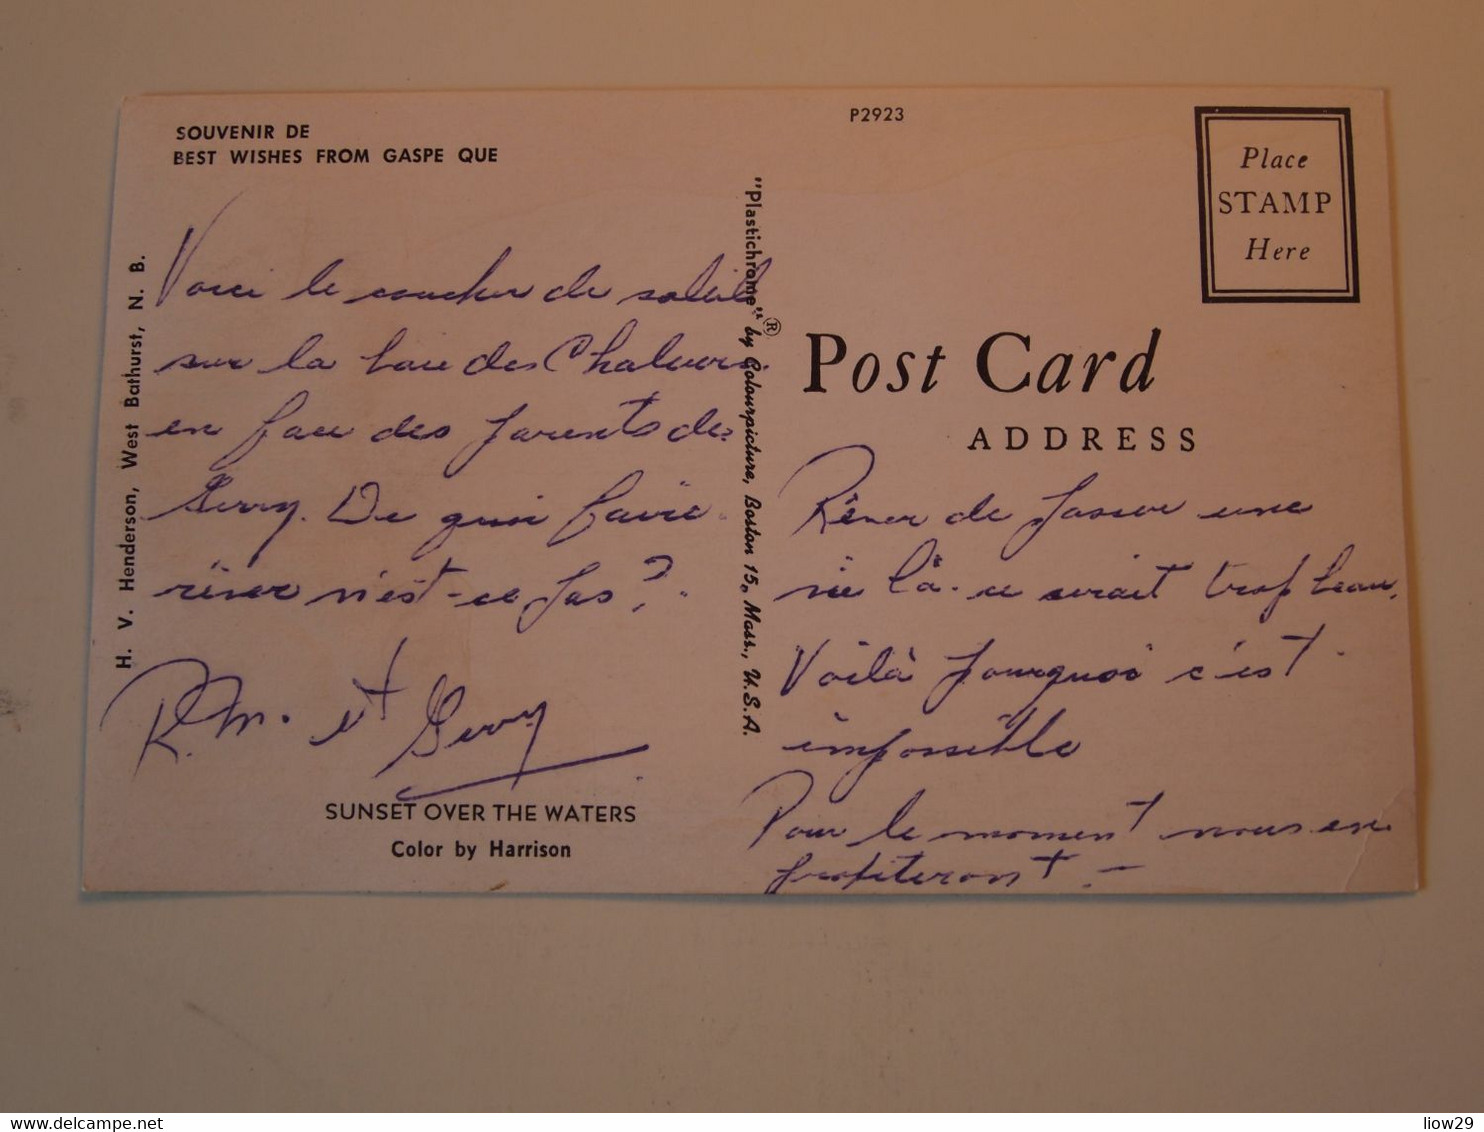 SOUVENIR DE
BEST WISHES FROM GASPE QUE
P2923
Place
STAMP
Here
Voici le coucher de soleil
sur la baie des Chaleurs
en face des parents de
Gerry. De quoi faire
rêver n'est-ce pas?
R.M. et Gerry
SUNSET OVER THE WATERS
Color by Harrison
H. V. Henderson, West Bathurst, N. B.
"Plastichrome"® by Colourpicture, Boston 15, Mass., U.S.A.
Post Card
ADDRESS
Rêver de passer une
vie là. ce serait trop beau.
Voilà pourquoi c'est
impossible
Pour le moment nous en
profiteront.-
www.delcampe.net
liow29